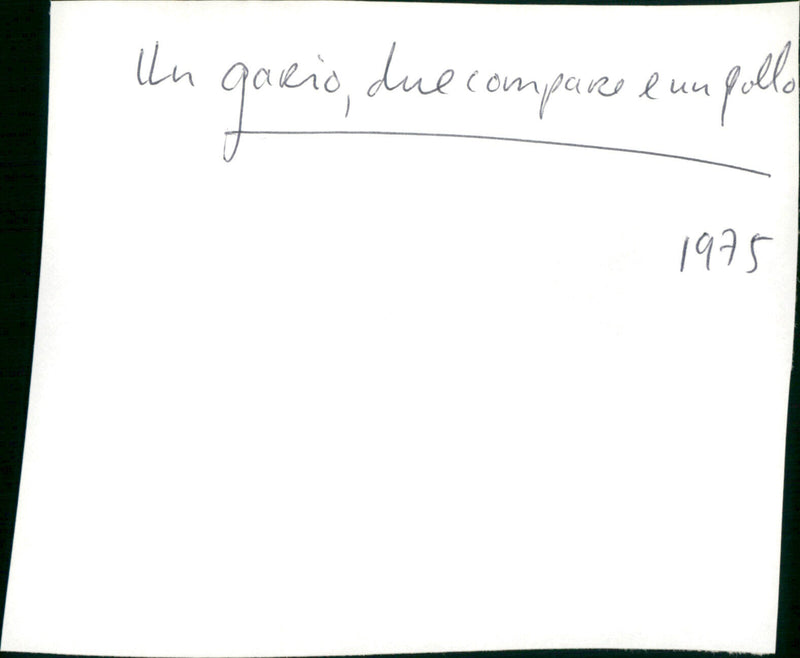 Un gario, due compare e un pollo
1975